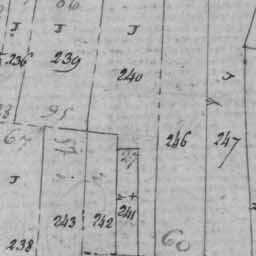 J J J
236 239 240 J
95
67 27 246 247
J
243 242 241
238 60